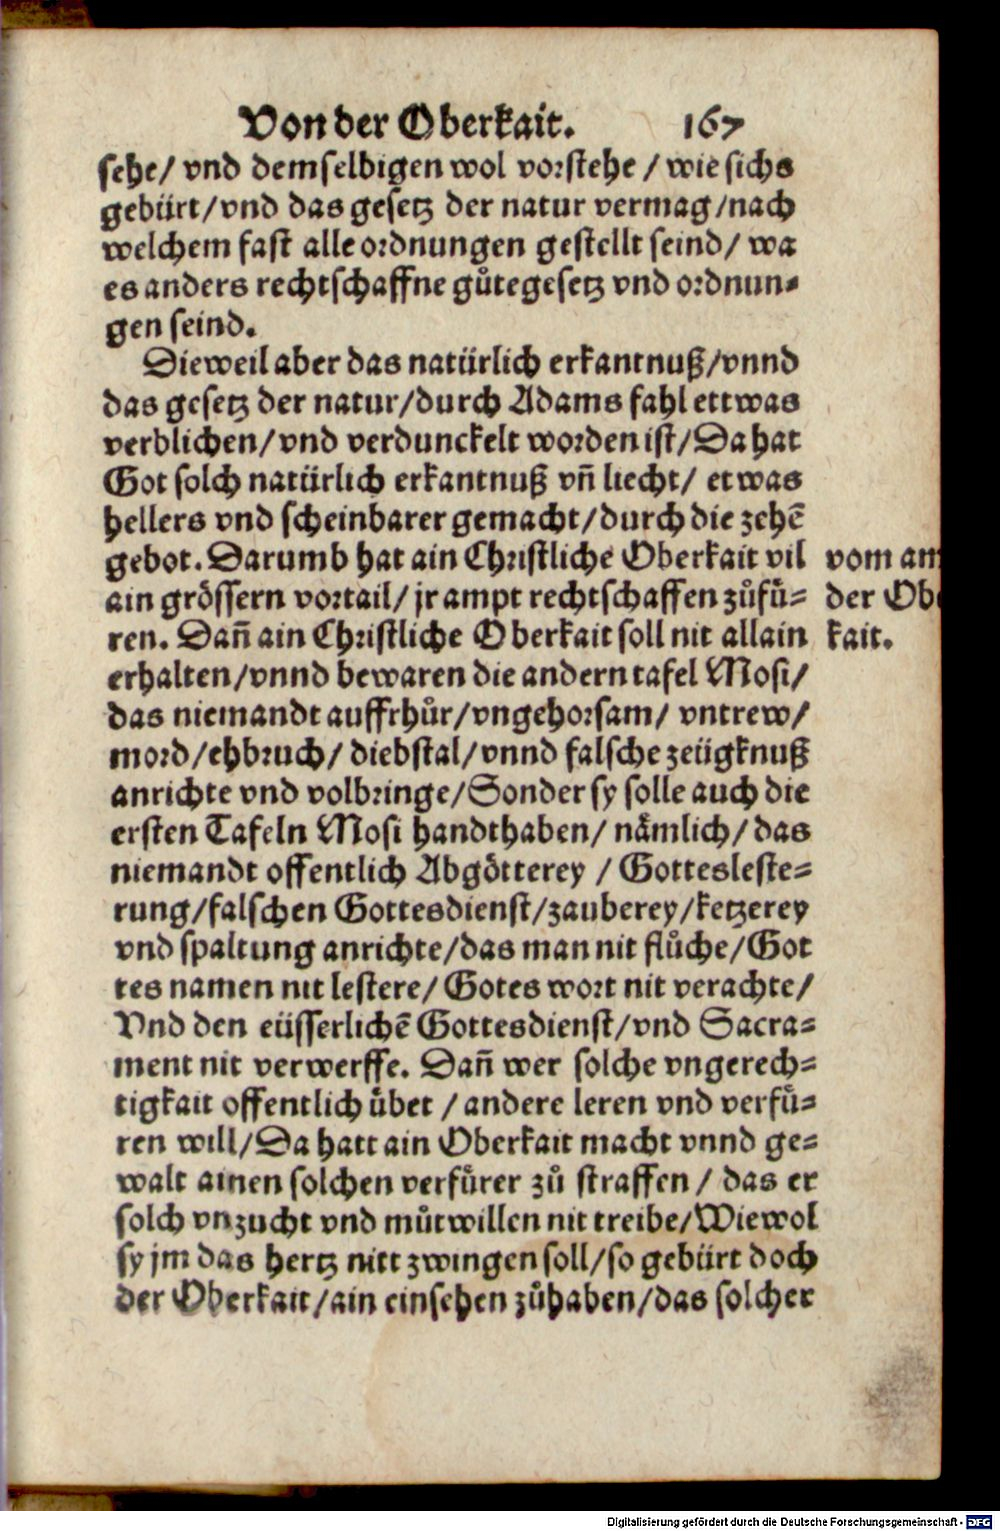 Von der Oberkait. 167
sehe/ vnd demselbigen wol vorstehe / wie sichs
gebürt/vnd das gesetz der natur vermag/nach
welchem fast alle ordnungen gestellt seind/ wa
es anders rechtschaffne gůte gesetz vnd ordnun-
gen seind.
Dieweil aber das natürlich erkantnuß/vnnd
das gesetz der natur/durch Adams fahl ettwas
verblichen/vnd verdunckelt worden ist/Da hat
Got solch natürlich erkantnuß vñ liecht/ etwas
hellers vnd scheinbarer gemacht/durch die zehẽ
gebot. Darumb hat ain Christliche Oberkait vil
ain grössern vortail/ jr ampt rechtschaffen zůfů-
ren. Dañ ain Christliche Oberkait soll nit allain
erhalten/vnnd bewaren die andern tafel Mosi/
das niemandt auffrhůr/vngehorsam/ vntrew/
mord/ehbruch/ diebstal/vnnd falsche zeügknuß
anrichte vnd volbringe/Sonder sy solle auch die
ersten Tafeln Mosi handthaben/ nämlich/das
niemandt offentlich Abgötterey / Gottesleste-
rung/falschen Gottesdienst/zauberey/ketzerey
vnd spaltung anrichte/das man nit flůche/Got
tes namen nit lestere/ Gotes wort nit verachte/
Vnd den eüsserlichẽ Gottesdienst/vnd Sacra-
ment nit verwerffe. Dañ wer solche vngerech-
tigkait offentlich übet / andere leren vnd verfů-
ren will/Da hatt ain Oberkait macht vnnd ge-
walt ainen solchen verfůrer zů straffen/ das er
solch vnzucht vnd můtwillen nit treibe/Wiewol
sy jm das hertz nitt zwingen soll/so gebürt doch
der Oberkait/ain einsehen zůhaben/das solcher
vom am
der Obe
kait.
Digitalisierung gefördert durch die Deutsche Forschungsgemeinschaft - DFG